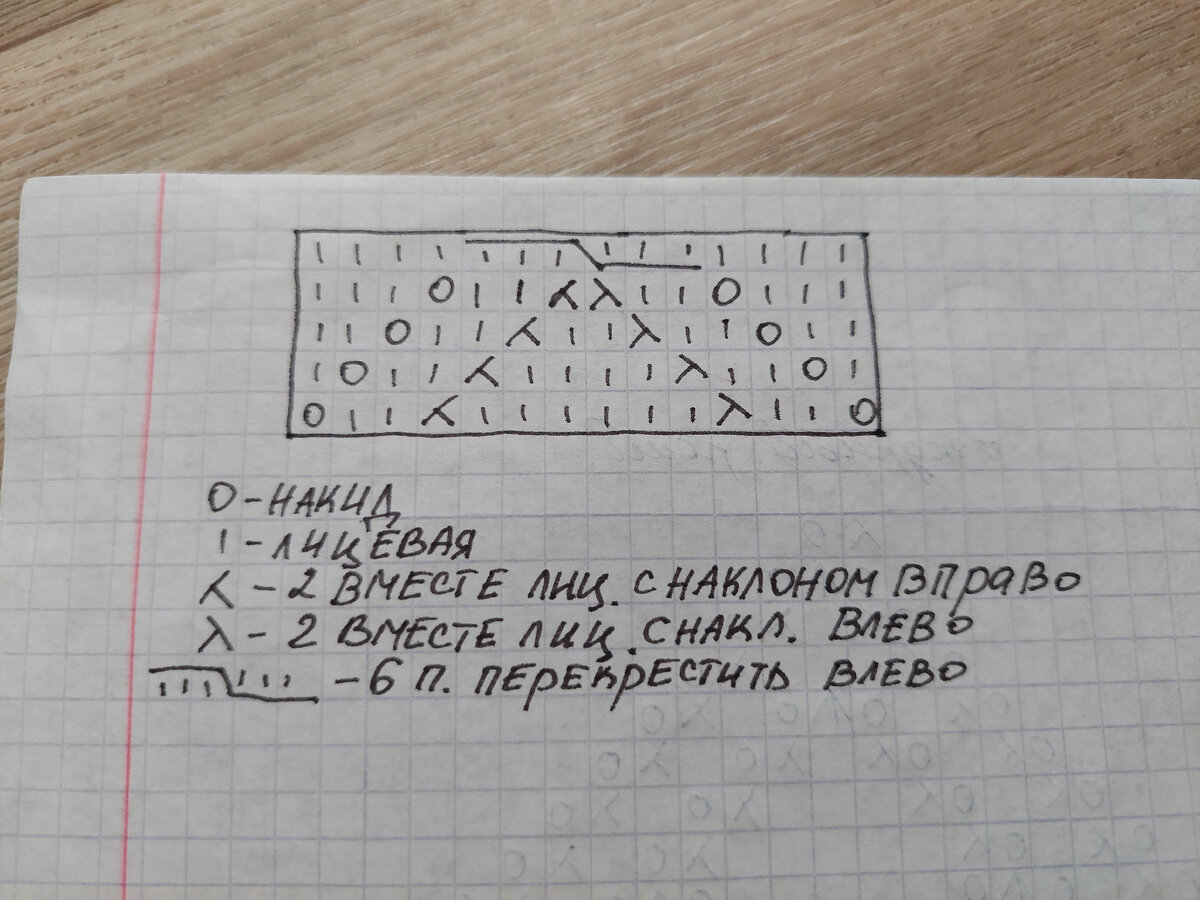 | | | | | | | | | | | | | |
| | | O | | ⋌ λ | | O | | |
| | O | | ⋌ | | λ | | O | |
| O | | ⋌ | | | | λ | | O |
O | | ⋌ | | | | | | λ | | O
О - НАКИД
| - ЛИЦЕВАЯ
⋌ - 2 ВМЕСТЕ ЛИЦ. С НАКЛОНОМ ВПРАВО
λ - 2 ВМЕСТЕ ЛИЦ. С НАКЛ. ВЛЕВО
| | | | | | - 6 П. ПЕРЕКРЕСТИТЬ ВЛЕВО